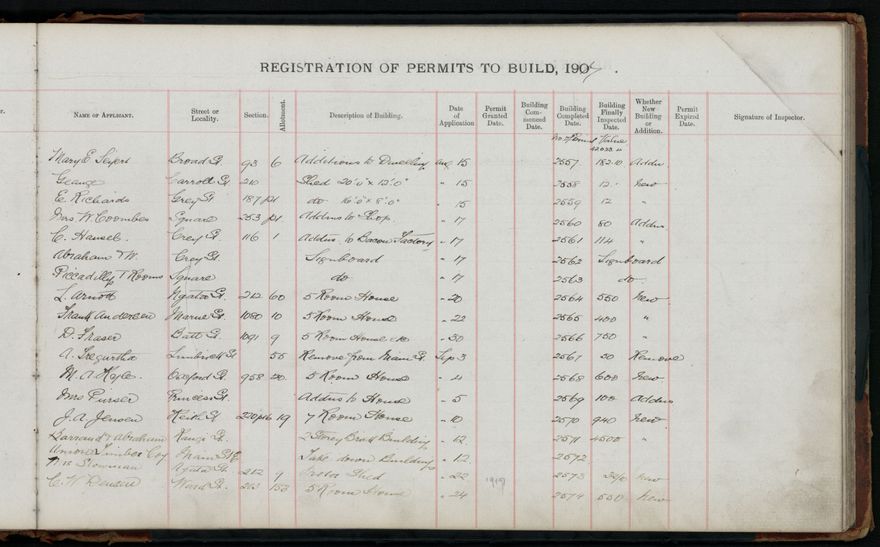 REGISTRATION OF PERMITS TO BUILD, 190
NAME OF APPLICANT. Street or Locality. Section. Allotment. Description of Building. Date of Application Permit Granted Date. Building Commenced Date. Building Completed Date. Building Finally Inspected Date. Whether New Building or Addition. Permit Expired Date. Signature of Inspector.
No of Permit Value
Mary E Broad St 93 6 Additions to Dwelling Aug 15 2557 182.10 Addn.
Carroll St 210 Shed 20'0" x 12'0" " 15 2558 12 New
E. Richards Grey St 187 pt1 do 16'0" x 8'0" " 15 2559 12 "
Mrs W Coombes Square 253 pt1 Addns to Shop " 17 2560 80 Addns
C. Hansel. Grey St. 116 1 Addns. to Bacon Factory " 17 2561 114 "
Abraham & W. Grey St. Signboard " 17 2562 Signboard
Piccadilly T Rooms Square do " 17 2563 do
L. Arnott Ngata St. 212 60 5 Room House " 20 2564 550 New
Frank Andersen Marne St. 1080 10 5 Room House " 22 2565 400 "
D. Fraser Batt St. 1091 9 5 Room House " 30 2566 750 "
A. Tregurtha St 55 Remove from Main St. Sep 3 2567 50 Remove
M. A. Oxford St. 958 5 Room House " 4 2568 600 New
Mrs Purser Princess St. Addns to House " 5 2569 100 Addns
J. A. Jensen Keith St. 19 7 Room House " 10 2570 940 New
& Abraham Rangi St. 2 Storey Building " 12 2571 4500 "
Union Timber Coy Main St Take down Building " 12 2572
Snowman Ngata St. 212 9 Shed " 22 2573 New
C. W. Ward St. 263 153 5 Room House " 24 1919 2574 550 New